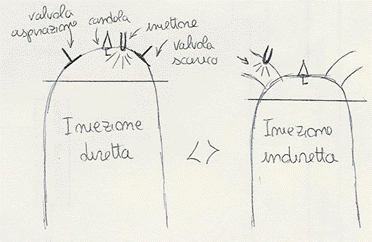 valvola
aspirazione
candela
iniettore
valvola
scarico
Iniezione
diretta
<>
Iniezione
indiretta